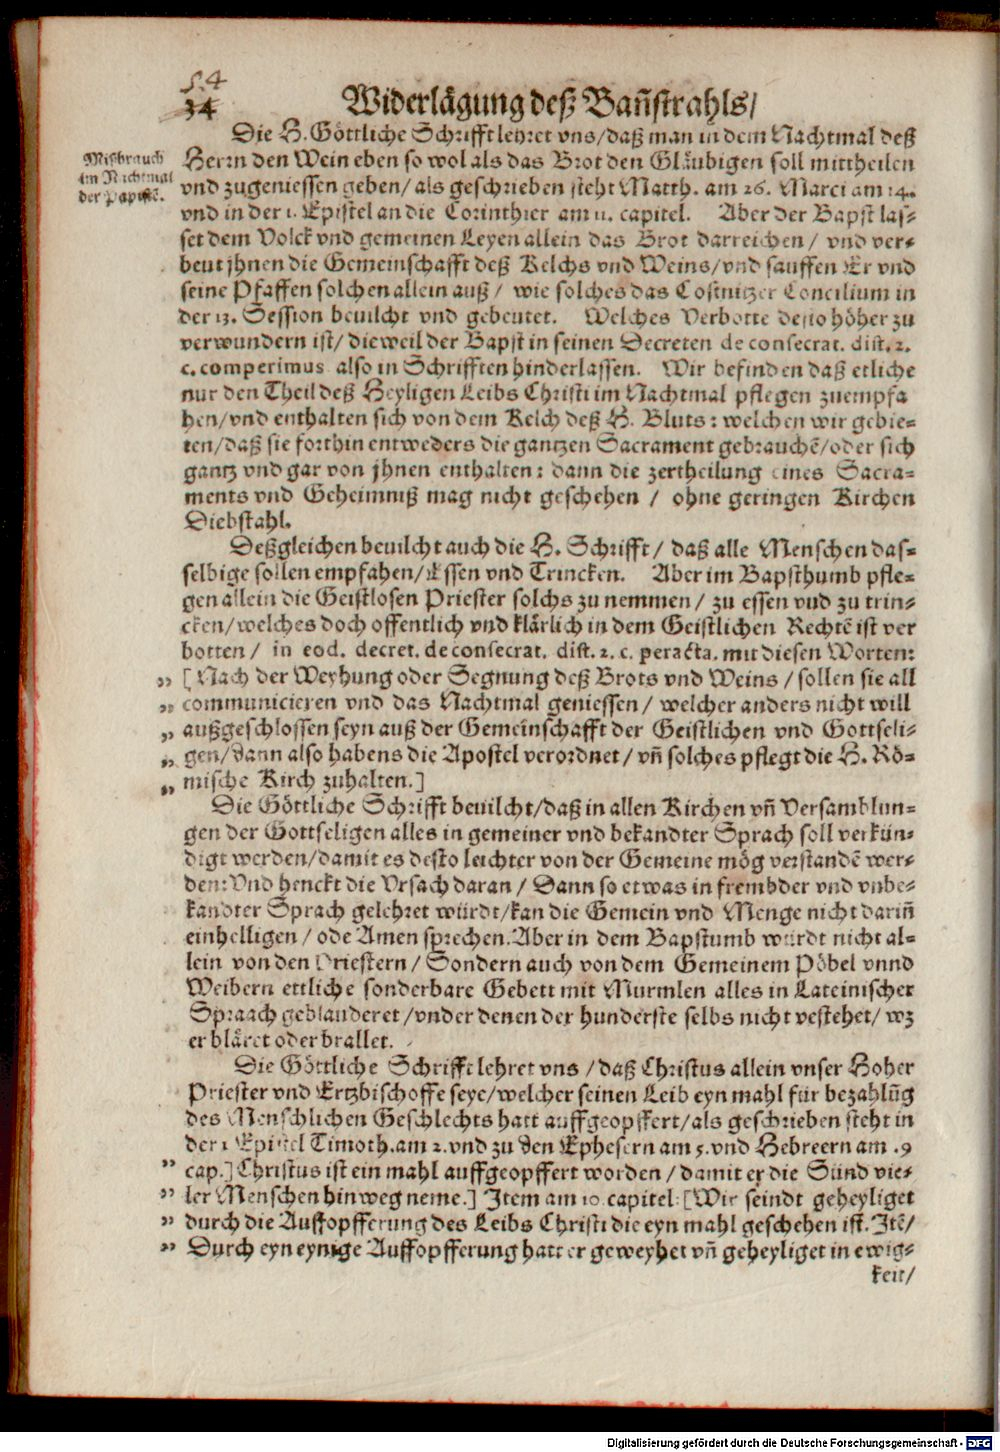 54
34 Widerlågung deß Bañstrahls/
Die H. Göttliche Schrifft lehret vns/daß man in dem Nachtmal deß
Mißbrauch
im Nachtmal
der Papisten.
Herrn den Wein eben so wol als das Brot den Gläubigen soll mittheilen
vnd zugeniessen geben/ als geschrieben steht Matth. am 26. Marci am 14.
vnd in der 1. Epistel an die Corinthier am 11. capitel. Aber der Bapst las-
set dem Volck vnd gemeinen Leyen allein das Brot darreichen/ vnd ver-
beut jhnen die Gemeinschafft deß Kelchs vnd Weins/vnd sauffen Er vnd
seine Pfaffen solchen allein auß/ wie solches das Costnitzer Concilium in
der 13. Session beuilcht vnd gebeutet. Welches Verbotte desto höher zu
verwundern ist/ dieweil der Bapst in seinen Decreten de consecrat. dist. 2.
c. comperimus also in Schrifften hinderlassen. Wir befinden daß etliche
nur den Theil deß Heyligen Leibs Christi im Nachtmal pflegen zuempfa
hen/vnd enthalten sich von dem Kelch deß H. Bluts: welchen wir gebie-
ten/daß sie forthin entweders die gantzen Sacrament gebrauchē/oder sich
gantz vnd gar von jhnen enthalten: dann die zertheilung eines Sacra-
ments vnd Geheimniß mag nicht geschehen / ohne geringen Kirchen
Diebstahl.
Deßgleichen beuilcht auch die H. Schrifft/ daß alle Menschen das-
selbige sollen empfahen/Essen vnd Trincken. Aber im Bapsthumb pfle-
gen allein die Geistlosen Priester solchs zu nemmen/ zu essen vnd zu trin-
cken/welches doch offentlich vnd klärlich in dem Geistlichen Rechtē ist ver
botten/ in eod. decret. de consecrat. dist. 2. c. peracta. mit diesen Worten:
„ [Nach der Weyhung oder Segnung deß Brots vnd Weins/ sollen sie all
„ communicieren vnd das Nachtmal geniessen/ welcher anders nicht will
„ außgeschlossen seyn auß der Gemeinschafft der Geistlichen vnd Gottseli-
„ gen/dann also habens die Apostel verordnet/ vñ solches pflegt die H. Rö-
„ mische Kirch zuhalten.]
Die Göttliche Schrifft beuilcht/daß in allen Kirchen vñ Versamblun-
gen der Gottseligen alles in gemeiner vnd bekandter Sprach soll verkün-
digt werden/damit es desto leichter von der Gemeine mög verstandē wer-
den: Vnd henckt die Vrsach daran/ Dann so etwas in frembder vnd vnbe-
kandter Sprach gelehret würdt/kan die Gemein vnd Menge nicht dariñ
einhelligen/ ode Amen sprechen. Aber in dem Bapstumb würdt nicht al-
lein von den Priestern/ Sondern auch von dem Gemeinem Pöbel vnnd
Weibern ettliche sonderbare Gebett mit Murmlen alles in Lateinischer
Spraach geblauderet/vnder denen der hunderste selbs nicht vestehet/ wz
er bläret oder brallet.
Die Göttliche Schrifft lehret vns/daß Christus allein vnser Hoher
Priester vnd Ertzbischoffe seye/welcher seinen Leib eyn mahl für bezahlūg
des Menschlichen Geschlechts hatt auffgeopffert/als geschrieben steht in
der 1 Epistel Timoth. am 2. vnd zu den Ephesern am 5. vnd Hebreern am .9
„ cap.] Christus ist ein mahl auffgeopffert worden/ damit er die Sünd vie-
„ ler Menschen hinweg neme.] Item am 10. capitel: [Wir seindt geheyliget
„ durch die Auffopfferung des Leibs Christi die eyn mahl geschehen ist. Itē/
„ Durch eyn eynige Auffopfferung hatt er geweyhet vñ geheyliget in ewig-
keit/
Digitalisierung gefördert durch die Deutsche Forschungsgemeinschaft - DFG